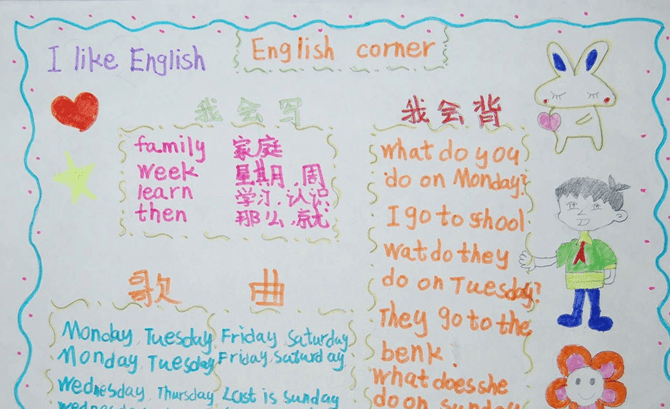 I like English
English corner
我会写
family 家庭
week 星期,周
learn 学习,认识
then 那么,就
我会背
what do you
do on Monday?
I go to shool
wat do they
do on Tuesday?
They go to the
benk.
what does she
do on sunday
歌曲
Monday, Tuesday, Friday, Saturday
Monday, Tuesday, Friday, Saturday
wednesday, Thursday, Last is sunday